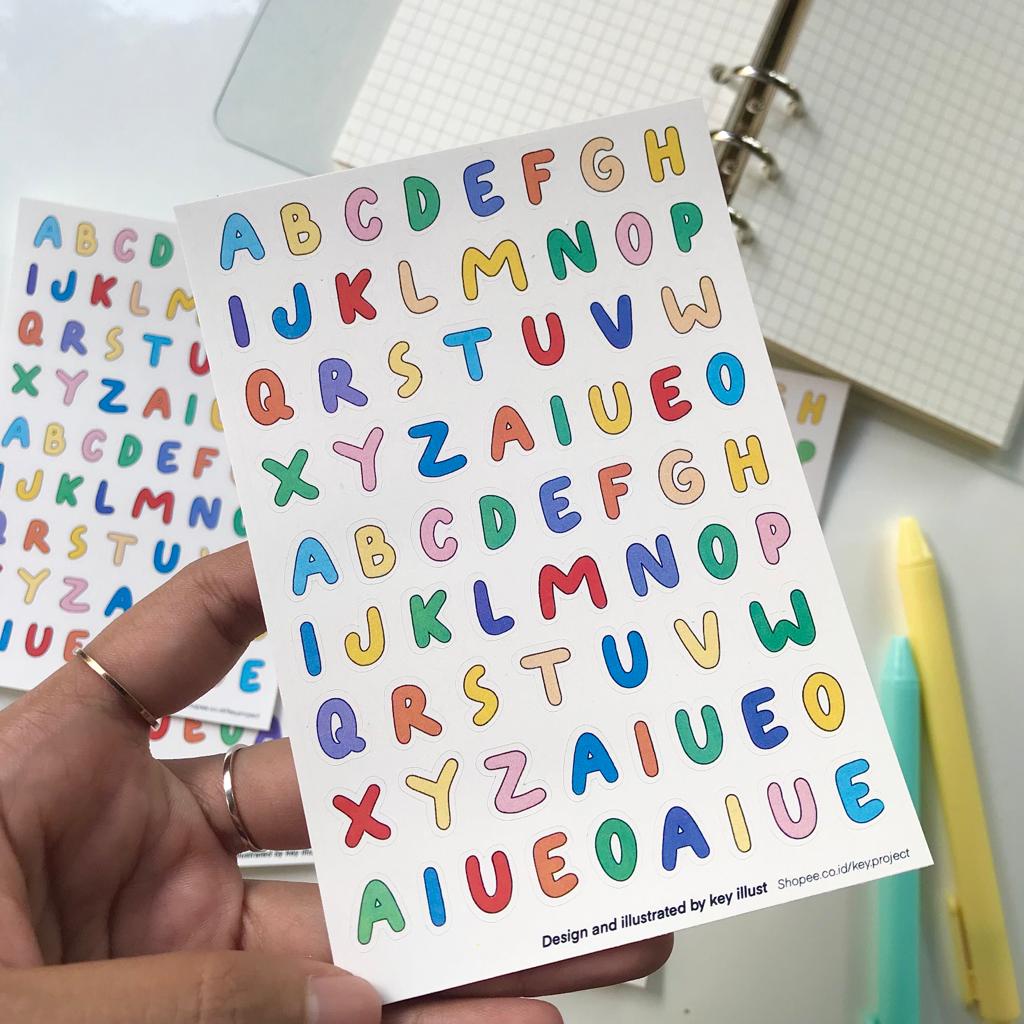 A B C D E F G H
I J K L M N O P
Q R S T U V W
X Y Z A I U E O
A B C D E F G H
I J K L M N O P
Q R S T U V W
X Y Z A I U E O
A I U E O A I U E
Design and illustrated by key illust Shopee.co.id/key.project
A B C D
I J K L M
Q R S T U
X Y Z A I U
A B C D E F
J K L M N
R S T U
Y Z A
I U E
E
H